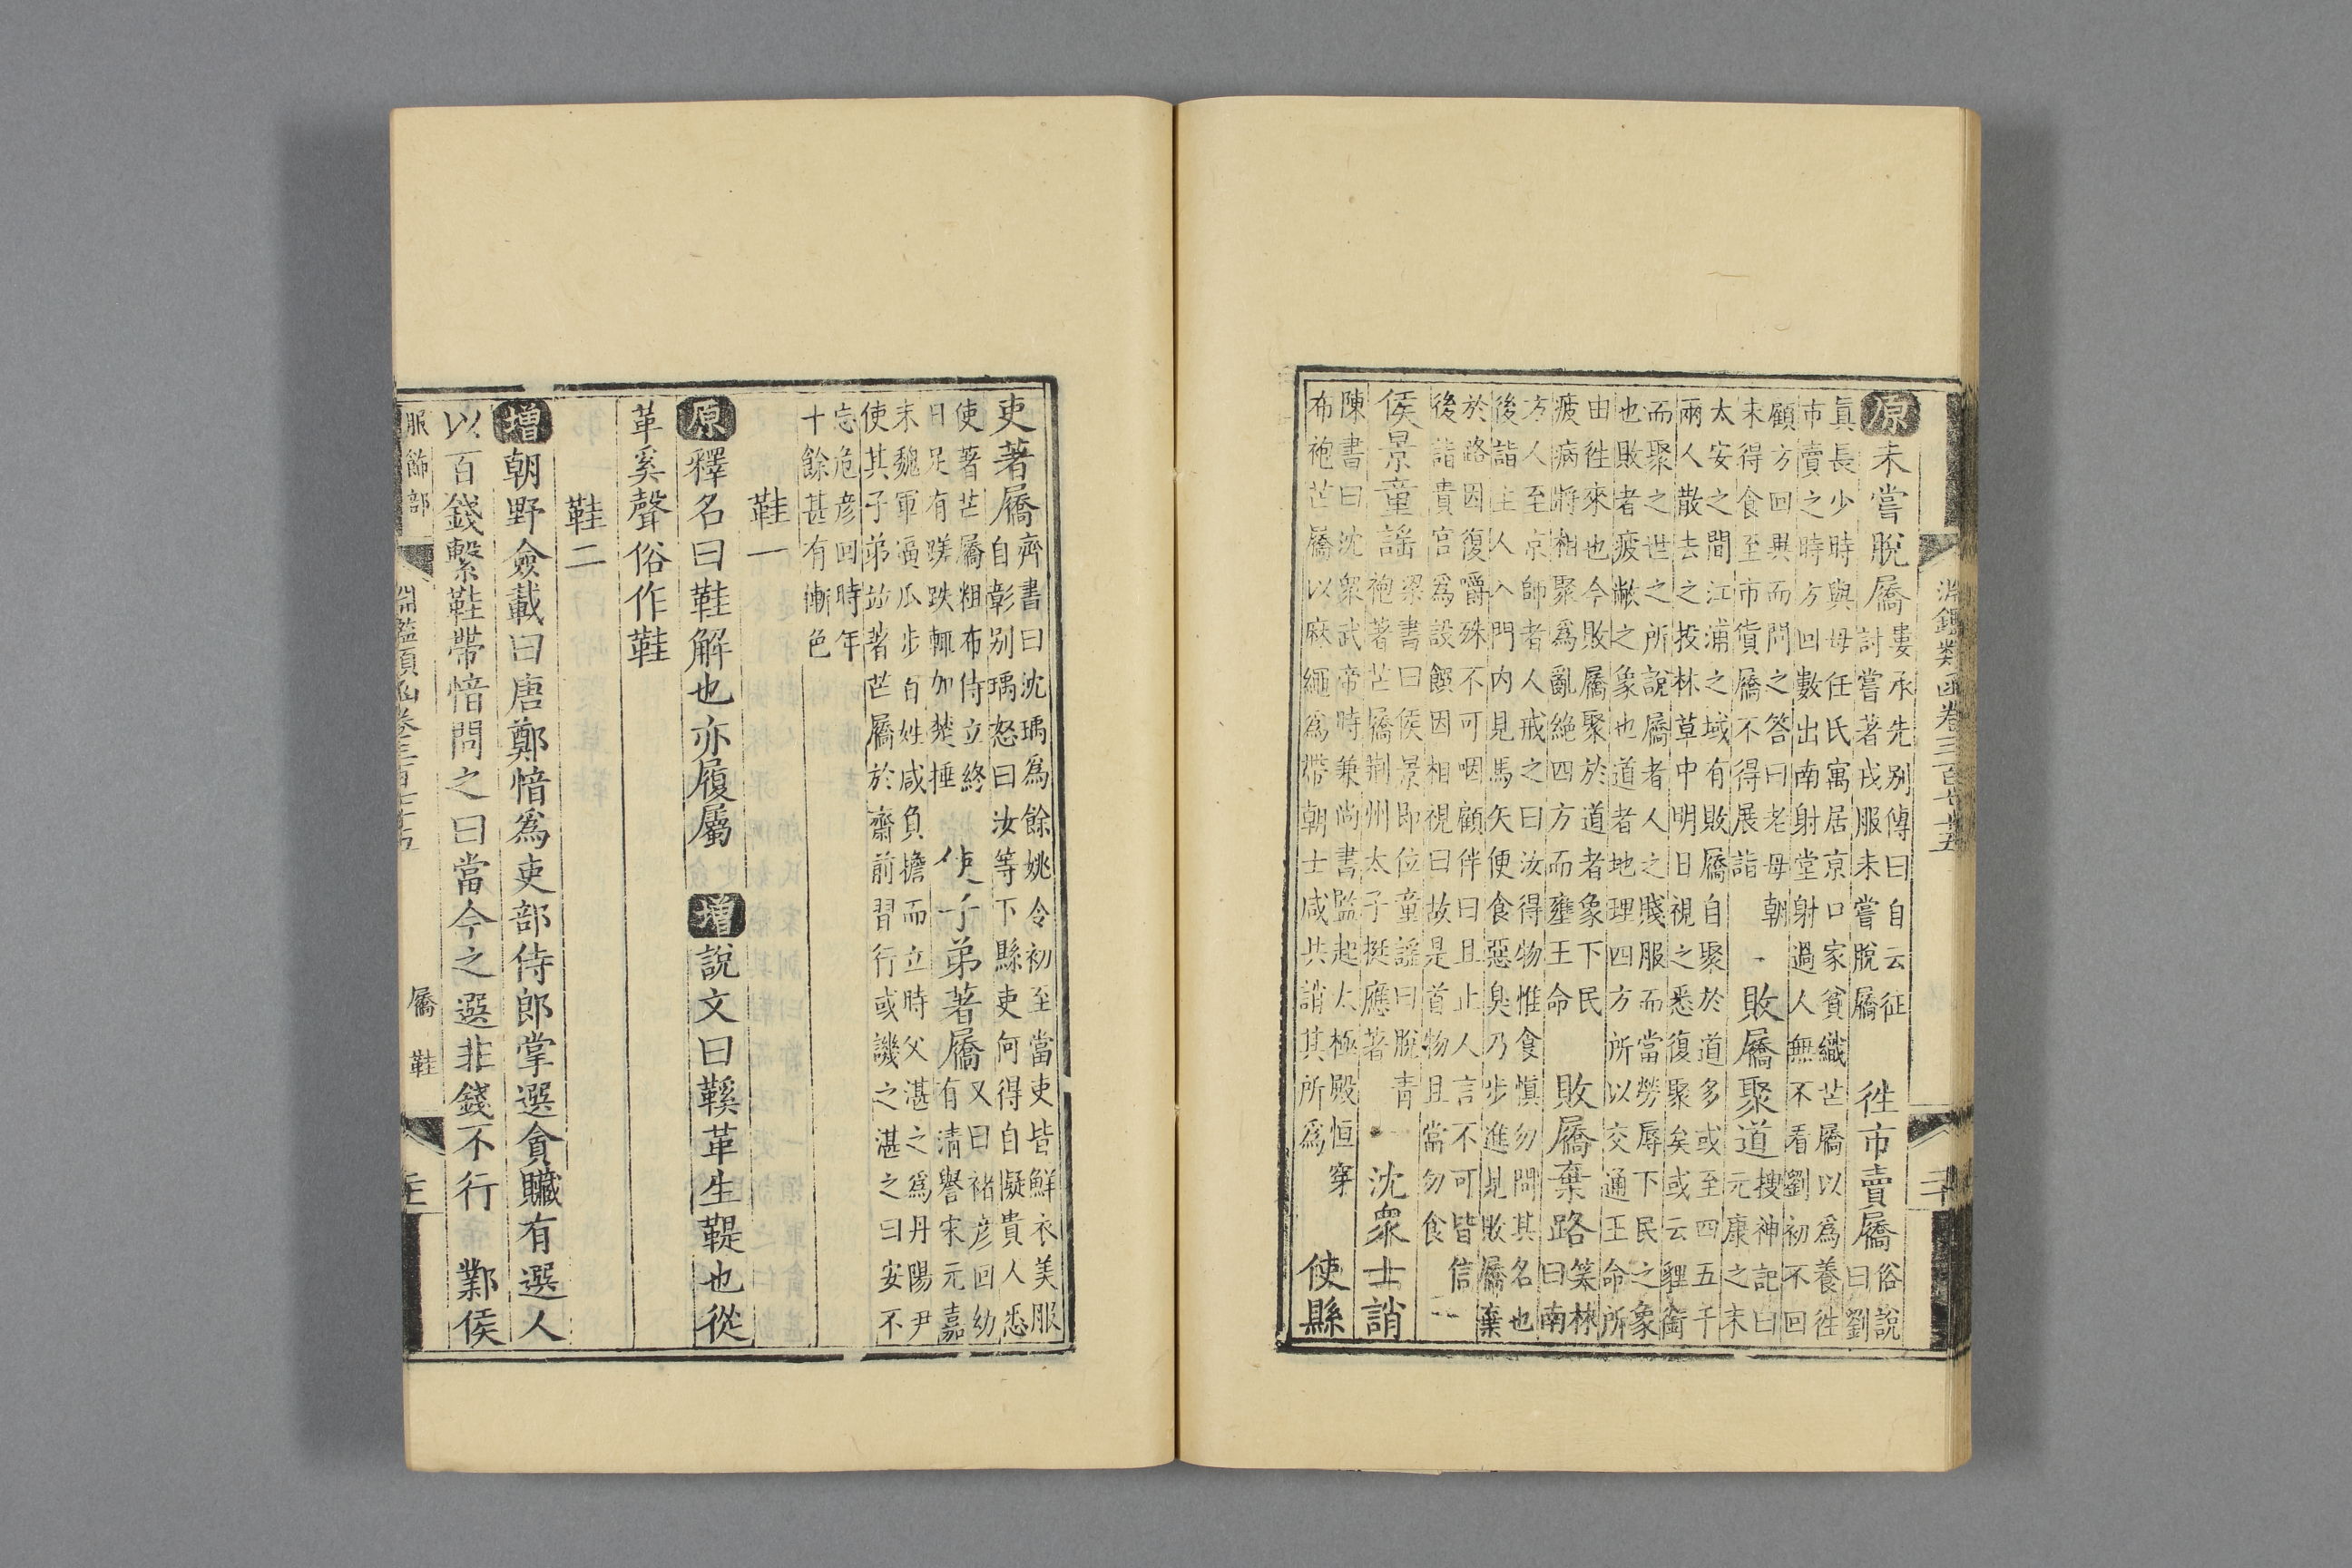 淵鑑類函卷三百七十五
二十
原未嘗脫屩
婁承先別傳曰自云征
討嘗著戎服未嘗脫屩
徃市賣屩
俗說
曰劉
眞長少時與母任氏寓居京口家貧織芒屩以爲養徃
市賣之時方回數出南射堂射過人無不看劉初不回
顧方回異而問之答曰老母朝
未得食至市貨屩不得展詣
敗屩聚道
搜神記曰
元康之末
太安之間江浦之域有敗屩自聚於道多或至四五千
兩人散去之投林草中明日視之悉復聚矣或云貍銜
而聚之世之所說屩者人之賤服而當勞辱下民之象
也敗者疲敝之象也道者地理四方所以交通王命所
由徃來也今敗屩聚於道者象下民
疲病將相聚爲亂絶四方而壅王命
敗屩棄路
笑林
曰南
方人至京師者人戒之曰汝得物惟食愼勿問其名也
後詣主人入門内見馬矢便食惡臭乃步進見敗屩棄
於路因復嚼殊不可咽顧伴曰且止人言不可皆信
後詣貴官爲設饌因相視曰故是首物且當勿食
侯景童謠
梁書曰侯景即位童謠曰脫青
袍著芒屩荆州太子挺應著
沈衆士誚
陳書曰沈衆武帝時兼尚書監起太極殿恒穿
布袍芒屩以麻繩爲帶朝士咸共誚其所爲
使縣
吏著屩
齊書曰沈瑀爲餘姚令初至當吏皆鮮衣美服
自彰别瑀怒曰汝等下縣吏何得自擬貴人悉
使著芒屩粗布侍立終
日足有蹉跌輒加榜捶
使子弟著屩
又曰褚彥回幼
有清譽宋元嘉
末魏軍逼瓜步百姓咸負擔而立時父湛之爲丹陽尹
使其子弟竝著芒屩於齋前習行或譏之湛之曰安不
忘危彥回時年
十餘甚有慚色
鞋一
原釋名曰鞋解也亦履屬
增說文曰鞵革生鞮也從
革奚聲俗作鞋
鞋二
增朝野僉載曰唐鄭愔爲吏部侍郎掌選貪贓有選人
以百錢繫鞋帶愔問之曰當今之選非錢不行 鄴侯
服飾部
淵鑑類函卷三百七十五
屩 鞋